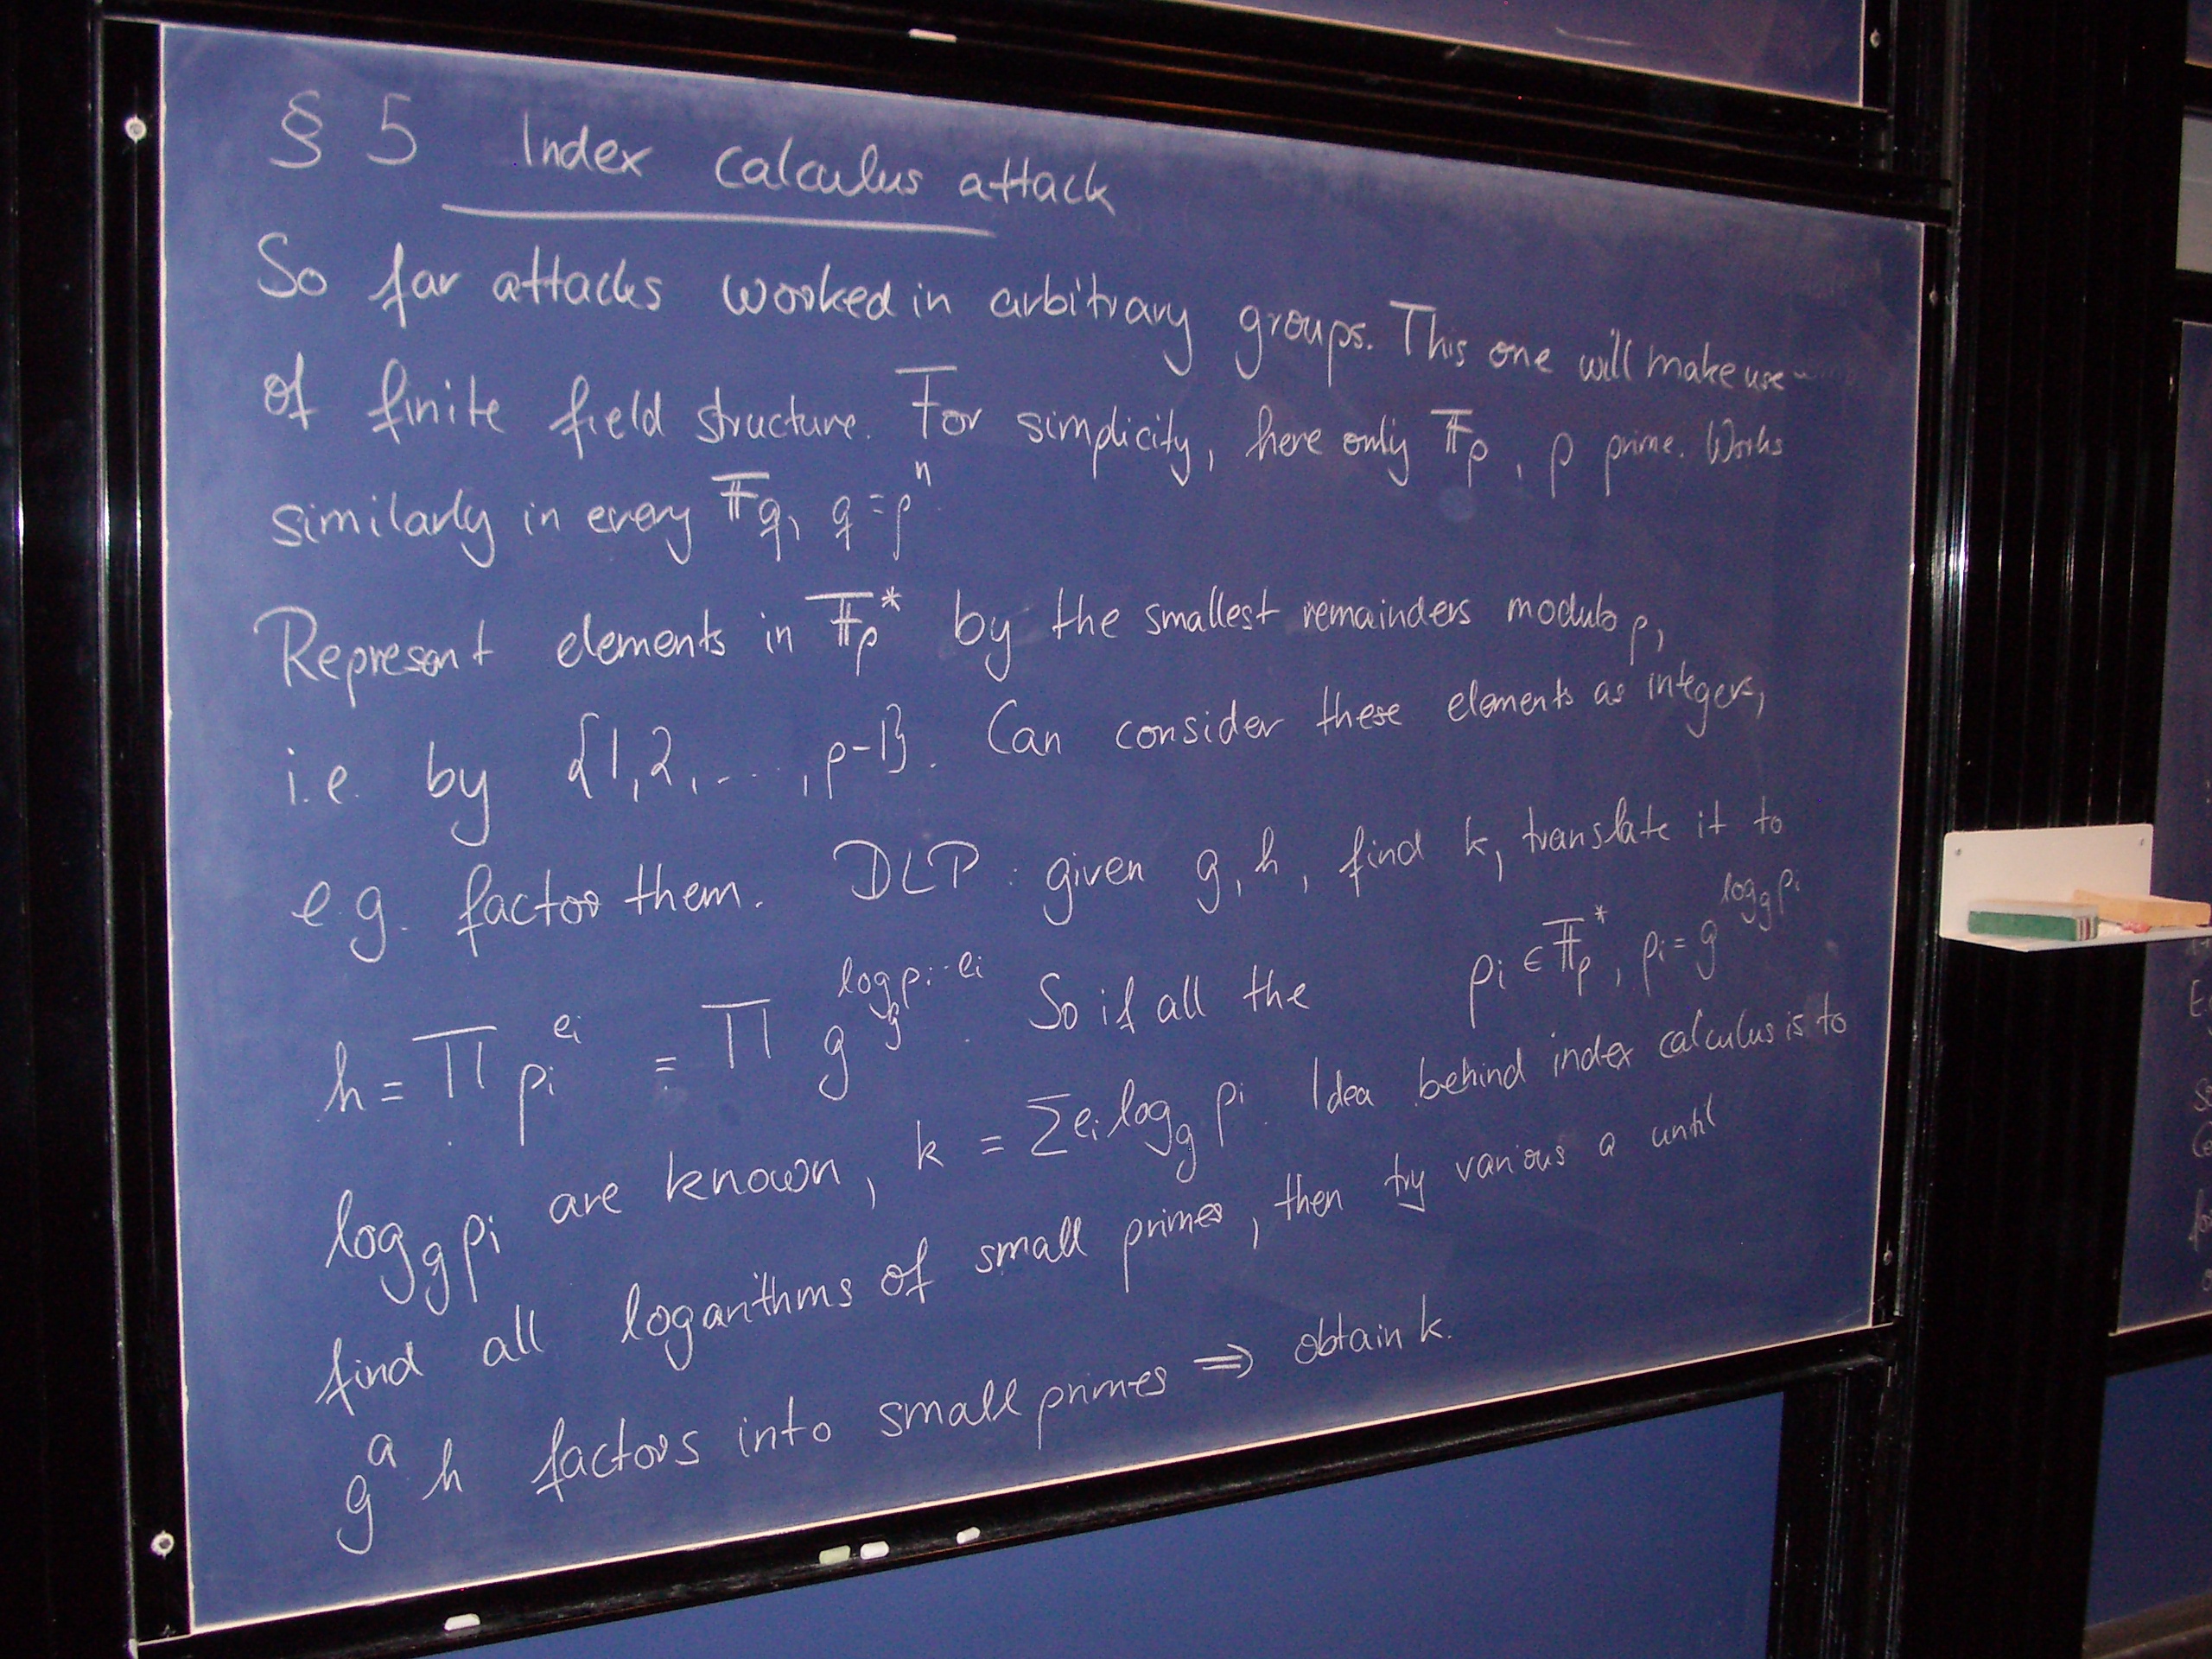 § 5 Index calculus attack
So far attacks worked in arbitrary groups. This one will make use
of finite field structure. For simplicity, here only 𝔽_p, p prime. Works
similarly in every 𝔽_q, q = p^n
Represent elements in 𝔽_p^* by the smallest remainders modulo p,
i.e. by {1,2,...,p-1}. Can consider these elements as integers,
e.g. factor them. DLP: given g, h, find k, translate it to
h = ∏ p_i^{e_i} = ∏ g^{log_g p_i · e_i}. So if all the p_i ∈ 𝔽_p^*, p_i = g^{log_g p_i}
log_g p_i are known, k = ∑ e_i log_g p_i. Idea behind index calculus is to
find all logarithms of small primes, then try various a until
g^a h factors into small primes ⇒ obtain k.